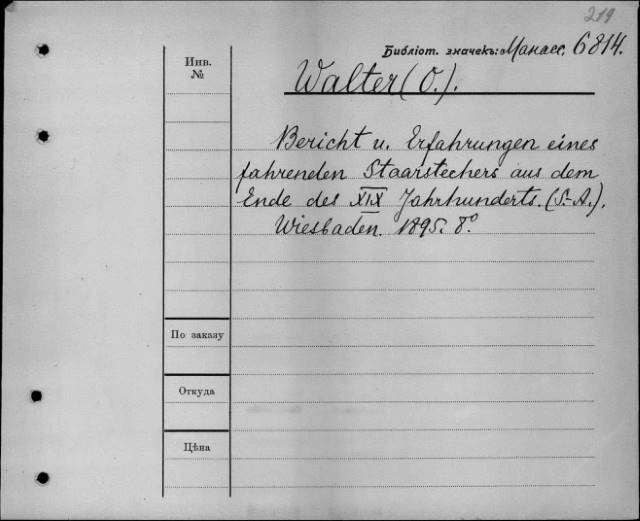 219
Библіот. значекъ: Манасс. 6814.
Инв.
№
Walter (O.).
Bericht u. Erfahrungen eines
fahrenden Staarstechers aus dem
Ende des XIX Jahrhunderts. (S.-A.).
Wiesbaden. 1895. 8°
По заказу
Откуда
Цѣна